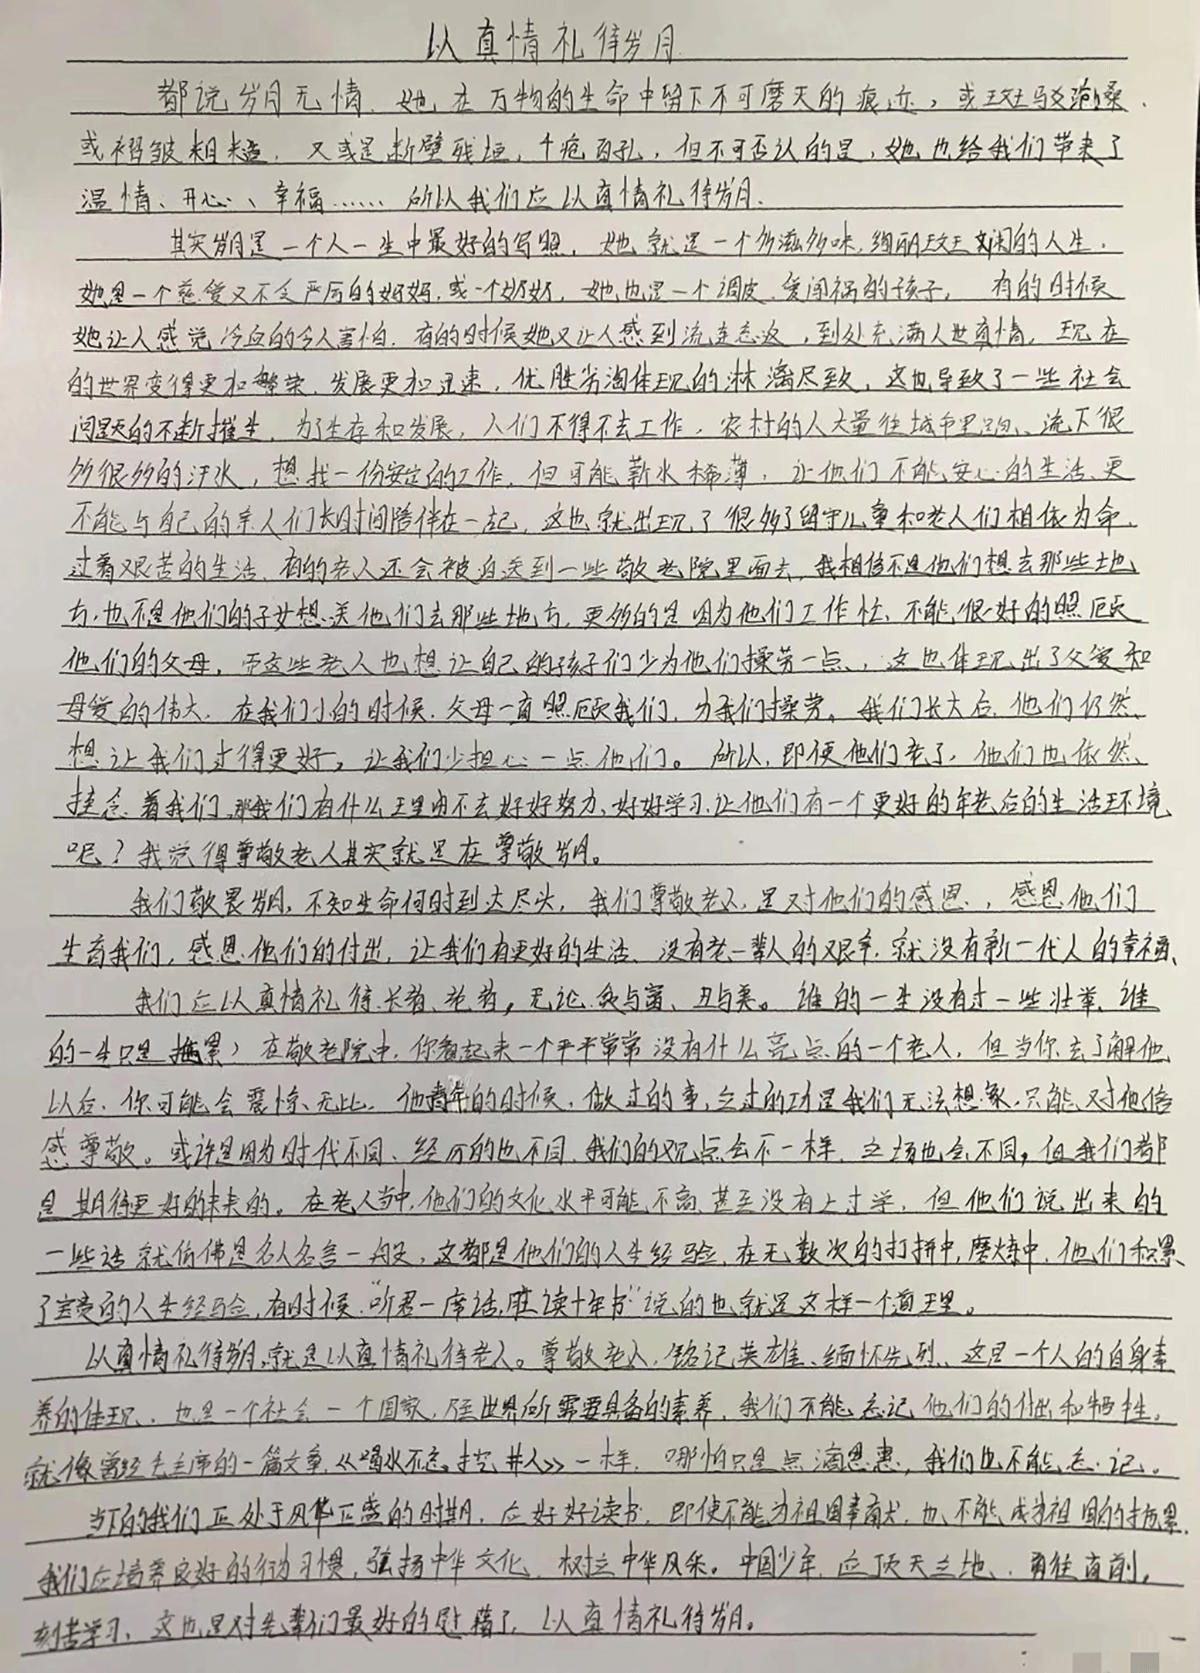 以真情礼待岁月
都说岁月无情,她在万物的生命中留下不可磨灭的痕迹,或斑驳沧桑,
或褶皱粗糙,又或是断壁残垣,千疮百孔,但不可否认的是,她也给我们带来了
温情、开心、幸福……所以我们应以真情礼待岁月.
其实岁月是一个人一生中最好的写照,她就是一个多滋多味,绚丽斑斓的人生,
她是一个慈爱又不乏严厉的妈妈,或一个奶奶,她也是一个调皮,爱闯祸的孩子,有的时候
她让人感觉冷血的令人害怕,有的时候她又让人感到流连忘返,到处充满人世真情,现在
的世界变得更加繁荣,发展更加迅速,优胜劣淘体现的淋漓尽致,这也导致了一些社会
问题的不断催生,为了生存和发展,人们不得不去工作,农村的人大量往城市里跑、流下很
多很多的汗水,想找一份安定的工作,但可能薪水稀薄,让他们不能安心的生活,更
不能与自己的亲人们长时间陪伴在一起,这也就出现了很多了留守儿童和老人们相依为命,
过着艰苦的生活,有的老人还会被迫送到一些敬老院里面去,我相信不是他们想去那些地
方,也不是他们的子女想送他们去那些地方,更多的是因为他们工作忙,不能很好的照顾
他们的父母,而这些老人也想让自己的孩子们少为他们操劳一点,这也体现出了父爱和
母爱的伟大,在我们小的时候,父母一直照顾我们,为我们操劳。我们长大后,他们仍然
想让我们过得更好,让我们少担心一点他们。所以,即便他们老了,他们也依然
挂念着我们,那我们有什么理由不去好好努力、好好学习,让他们有一个更好的年老后的生活环境
呢?我觉得尊敬老人其实就是在尊敬岁月。
我们敬畏岁月,不知生命何时到达尽头,我们尊敬老人,是对他们的感恩,感恩他们
生育我们,感恩他们的付出,让我们有更好的生活、没有老一辈人的艰辛,就没有新一代人的幸福、
我们应以真情礼待长者、老者,无论贫与富、丑与美。谁的一生没有过一些壮举,谁
的一生只是拖累?在敬老院中,你看起来一个平平常常没有什么亮点的一个老人,但当你去了解他
以后,你可能会震惊无比,他青年的时候,做过的事,立过的功是我们无法想象,只能对他倍
感尊敬。或许是因为时代不同、经历的也不同,我们的观点会不一样,立场也会不同,但我们都
是期待更好的未来的。在老人当中,他们的文化水平可能不高,甚至没有上过学,但他们说出来的
一些话就仿佛是名人名言一般,这都是他们的人生经验,在无数次的打拼中,磨炼中,他们积累
了宝贵的人生经验,有时候“听君一席话,胜读十年书”说的也就是这样一个道理。
以真情礼待岁月,就是以真情礼待老人。尊敬老人,铭记英雄、缅怀先烈、这是一个人的自身素
养的体现、也是一个社会一个国家,全世界所需要具备的素养,我们不能忘记他们的付出和牺牲,
就像曾经毛主席的一篇文章《喝水不忘挖井人》一样,哪怕只是点滴恩惠,我们也不能忘记。
当下的我们正处于风华正盛的时期,应好好读书,即使不能为祖国奉献,也不能成为祖国的拖累,
我们应培养良好的行为习惯,弘扬中华文化,树立中华风采。中国少年,应顶天立地、勇往直前,
刻苦学习、这也是对先辈们最好的慰藉了,以真情礼待岁月。